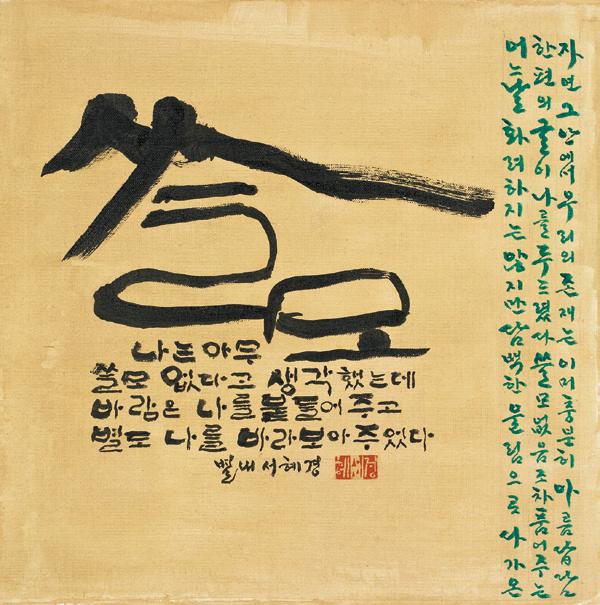 쓸모
나는 아무
쓸모 없다고 생각했는데
바람은 나를 붙들어 주고
별도 나를 바라보아 주었다
별내 서혜경
어느날 화려하지는 않지만 담백한 울림으로 다가온
한 편의 글이 나를 두드렸다 쓸모없음조차 품어주는
자연 그 안에서 우리의 존재는 이미 충분히 아름답다